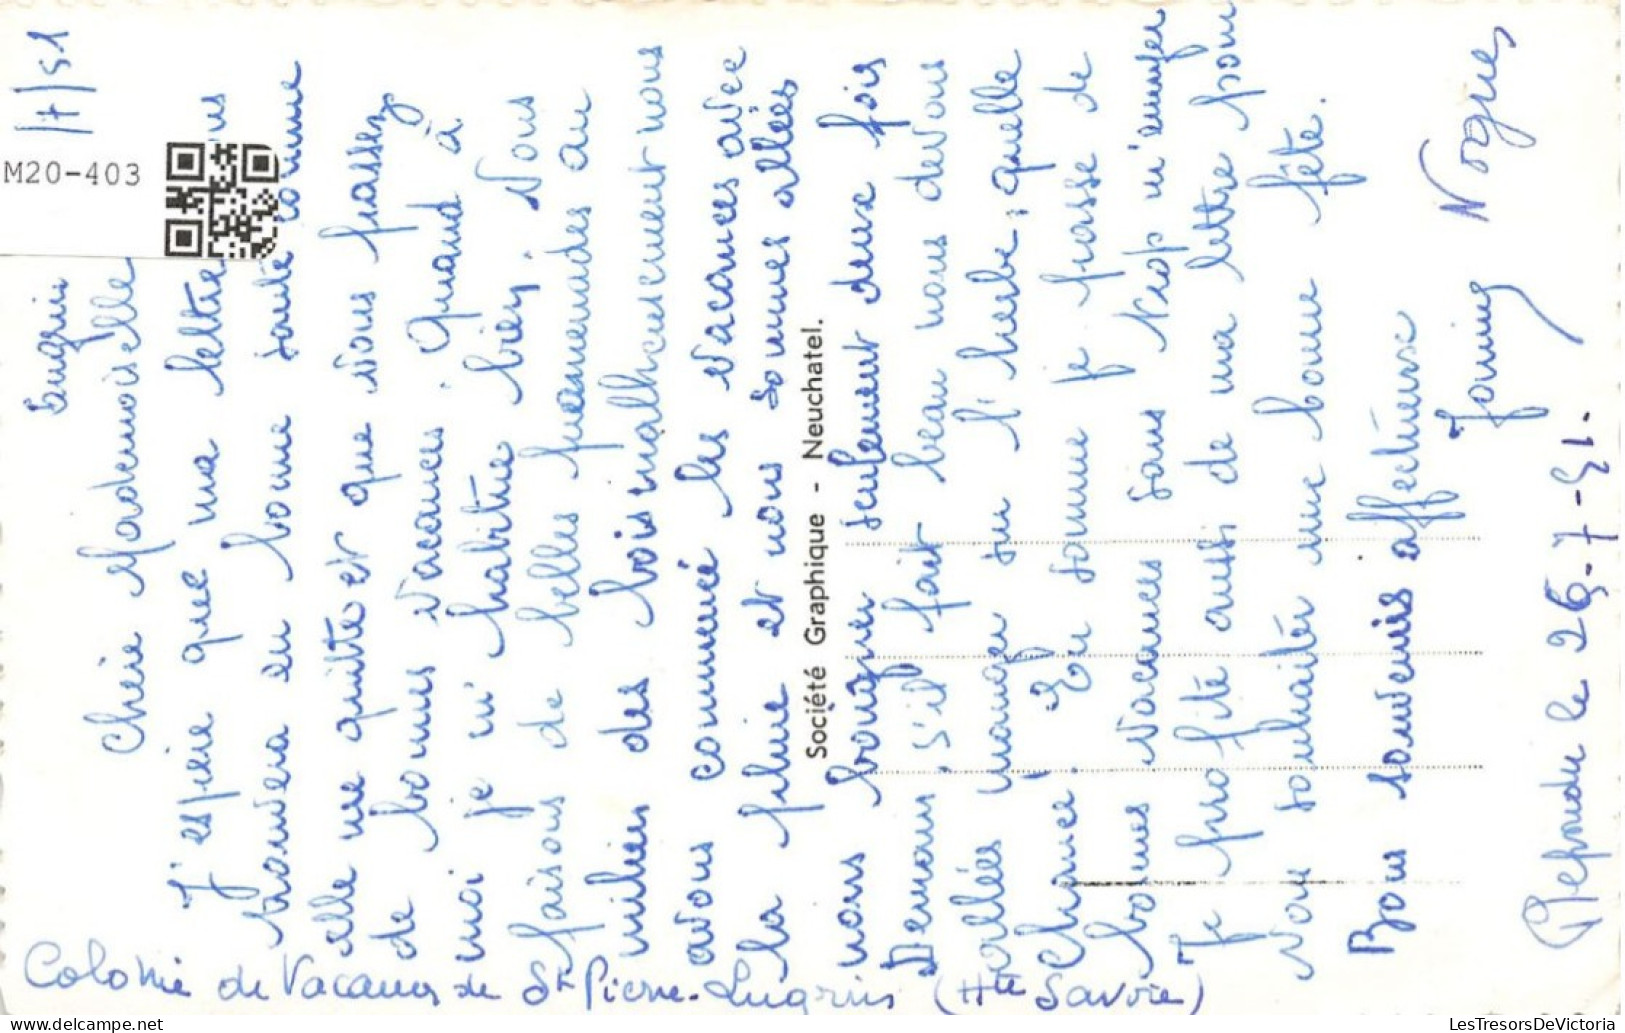 Lugrin /7/51
Chère Mademoiselle
J'espère que ma lettre
trouvera en bonne santé comme
elle me quitte et que vous passez
de bonnes vacances. Quand à
moi je m'habitue bien, Nous
faisons de belles preamenades au
milieu des bois malheureument nous
avons commencé les vacances avec
la pluie et nous sommes allées
nous baigner seulement deux fois
Demain, s'il fait beau nous devons
allées manger sur l'herbe, quelle
chance! En somme je passe de
bonnes vacances sans trop m'ennuyer
Je profite aussi de ma lettre pour
vous souhaiter une bonne fête.
Bons souvenirs affectueux
Nogues
Colonie de Vacances de St Pierre-Lugrin (Hte Savoie)
Répondu le 26-7-51.
Société Graphique - Neuchatel.
M20-403
LesTresorsDeVictoria